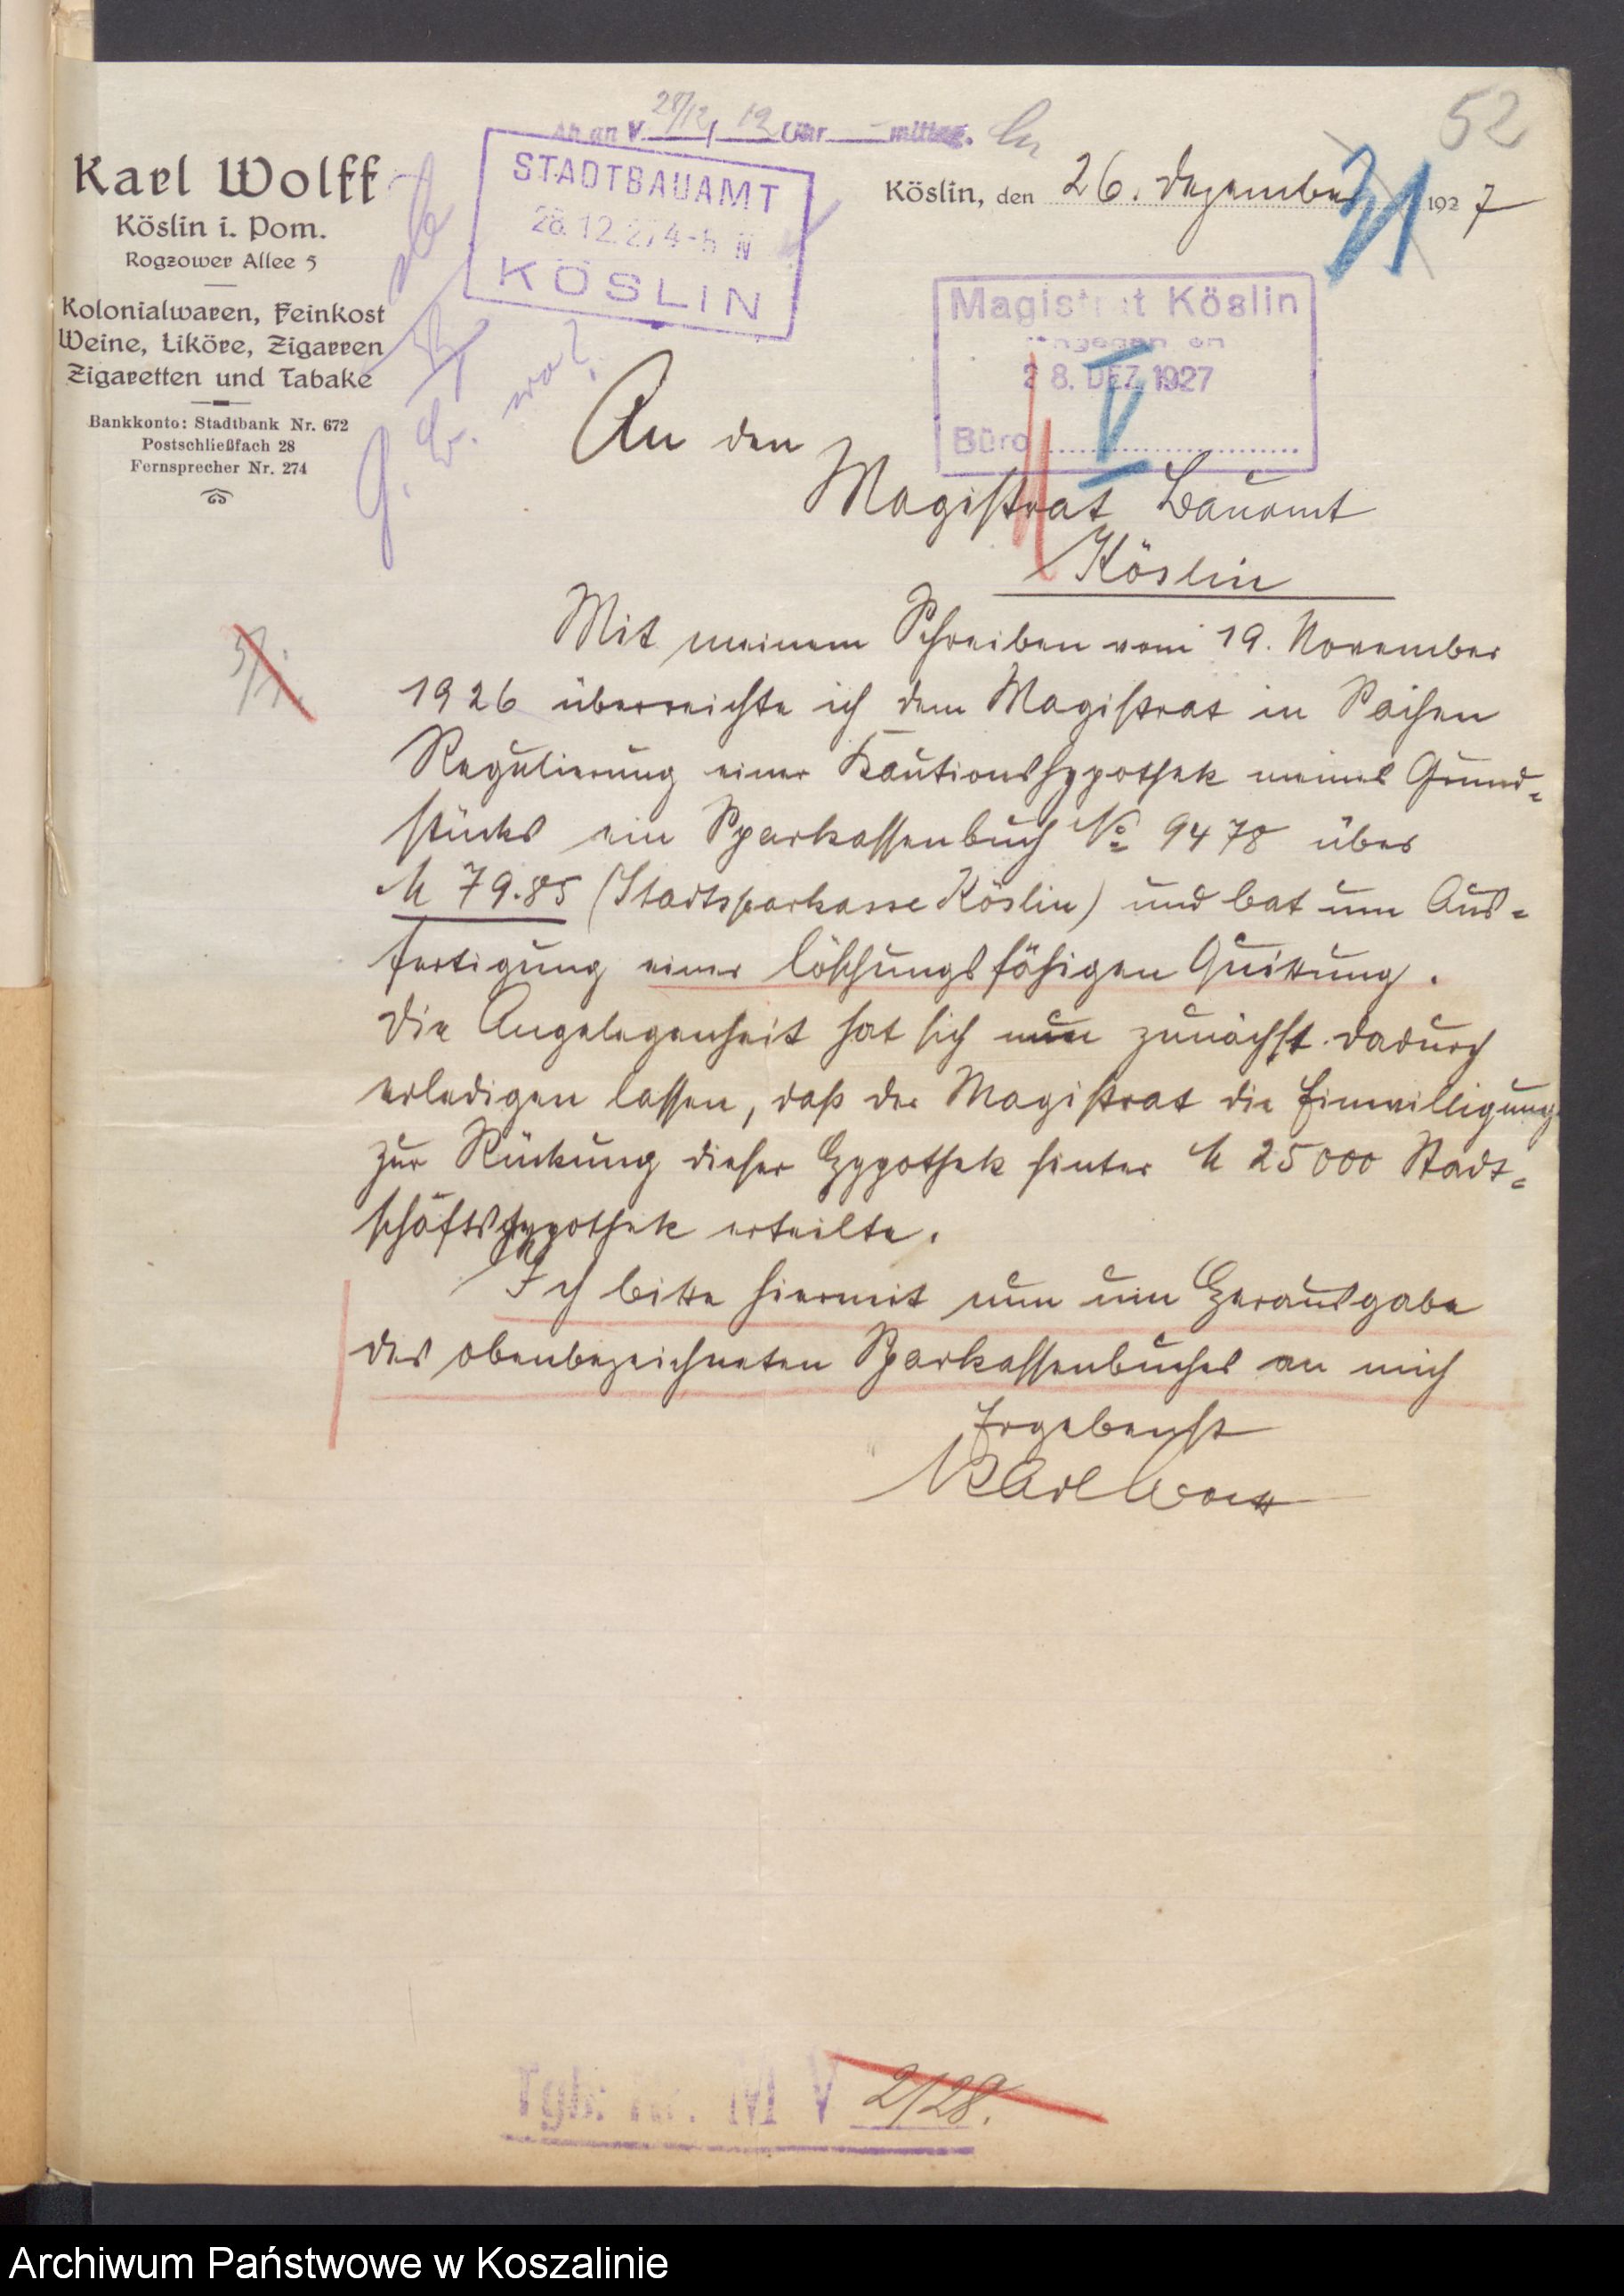 52
Ab an V. 28/12, 12 Uhr mittag.
STADTBAUAMT
28.12.27 4-5 N
KÖSLIN
Karl Wolff
Köslin i. Pom.
Rogzower Allee 5
Kolonialwaren, Feinkost
Weine, Liköre, Zigarren
Zigaretten und Tabake
Bankkonto: Stadtbank Nr. 672
Postschließfach 28
Fernsprecher Nr. 274
Köslin, den 26. Dezember 1927
Magistrat Köslin
28. DEZ. 1927
Büro V
An den
Magistrat Bauamt
Köslin
Mit meinem Schreiben vom 19. November
1926 überreichte ich dem Magistrat in Sachen
Regulierung einer Kautionshypothek meines Grund=
stücks ein Sparkassenbuch No 9478 über
M 79.85 (Stadtsparkasse Köslin) und bat um Aus=
fertigung einer löschungsfähigen Quittung.
Die Angelegenheit hat sich nun zunächst dadurch
erledigen lassen, daß der Magistrat die Einwilligung
zur Rückung dieser Hypothek hinter M 25000 Stadt=
schaftshypothek erteilte.
Ich bitte hiermit nun um Herausgabe
des obenbezeichneten Sparkassenbuches an mich
Ergebenst
Karl Wolff
Tgb. Nr. M V 2/28.
Archiwum Państwowe w Koszalinie